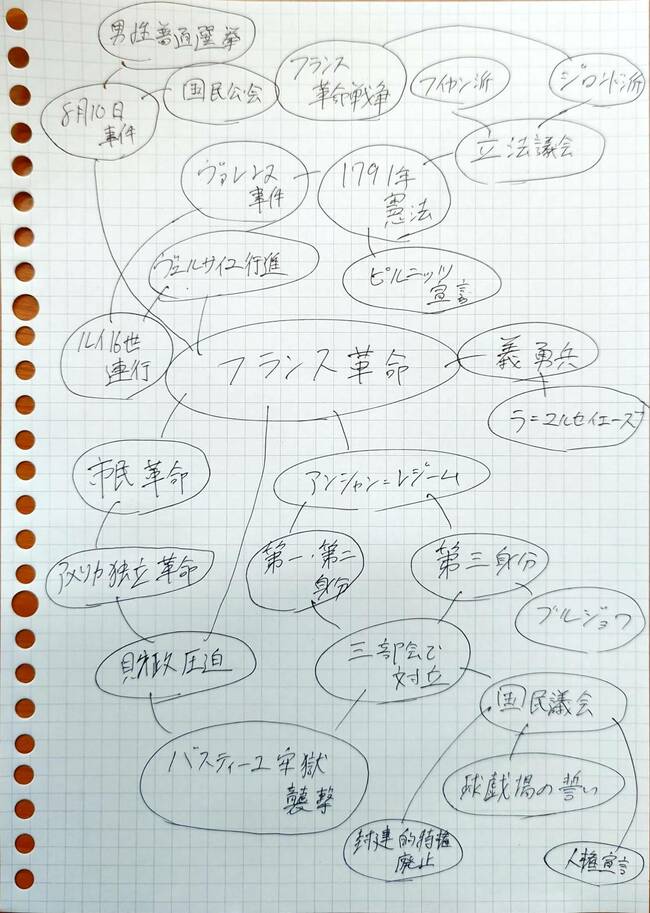 男性普通選挙
国民公会
フランス
革命戦争
フイヤン派
ジロンド派
8月10日
事件
立法議会
ヴァレンヌ
事件
1791年
憲法
ヴェルサイユ行進
ピルニッツ
宣言
ルイ16世
連行
フランス革命
義勇兵
ラ=マルセイエーズ
市民革命
アンシャン=レジーム
アメリカ独立革命
第一・第二
身分
第三身分
ブルジョワ
財政圧迫
三部会で
対立
国民議会
バスティーユ牢獄
襲撃
球戯場の誓い
封建的特権
廃止
人権宣言